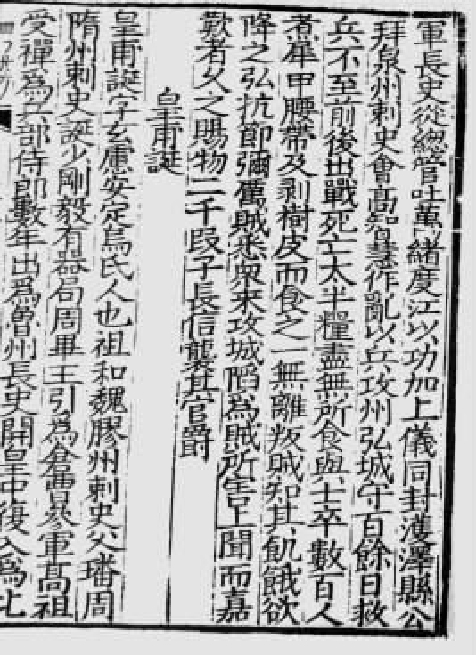 軍長史從總管吐萬緒度江以功加上儀同封濩澤縣公
拜泉州刺史會高智慧作亂以兵攻州弘城守百餘日救
兵不至前後出戰死亡太半糧盡無所食與士卒數百人
煮犀甲腰帶及剥樹皮而食之一無離叛賊知其飢餓欲
降之弘抗節彌厲賊悉衆來攻城陷爲賊所害上聞而嘉
歎者久之賜物二千段子長信襲其官爵
皇甫誕
皇甫誕字玄慮安定烏氏人也祖和魏膠州刺史父璠周
隋州刺史誕少剛毅有器局周畢王引爲倉曹參軍高祖
受禪爲兵部侍郎數年出爲魯州長史開皇中復入爲比